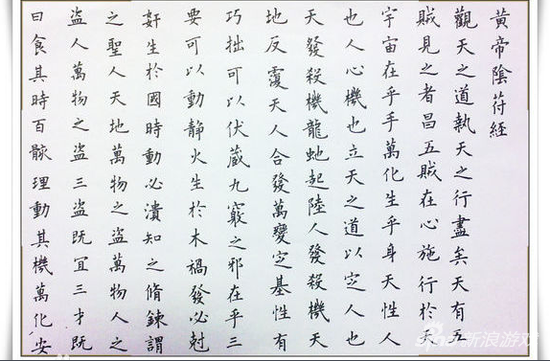 黄帝陰苻經
觀天之道執天之行盡矣天有五
賊見之者昌五賊在心施行於天
宇宙在乎手萬化生乎身天性人
也人心機也立天之道以定人也
天發殺機龍虵起陸人發殺機天
地反覆天人合發萬變定基性有
巧拙可以伏蔵九竅之邪在乎三
要可以動静火生於木禍發必尅
奸生於國時動必潰知之脩鍊謂
之聖人天地萬物之盗萬物人之
盗人萬物之盗三盗既宜三才既
曰食其時百骸理動其機萬化安
新浪游戏